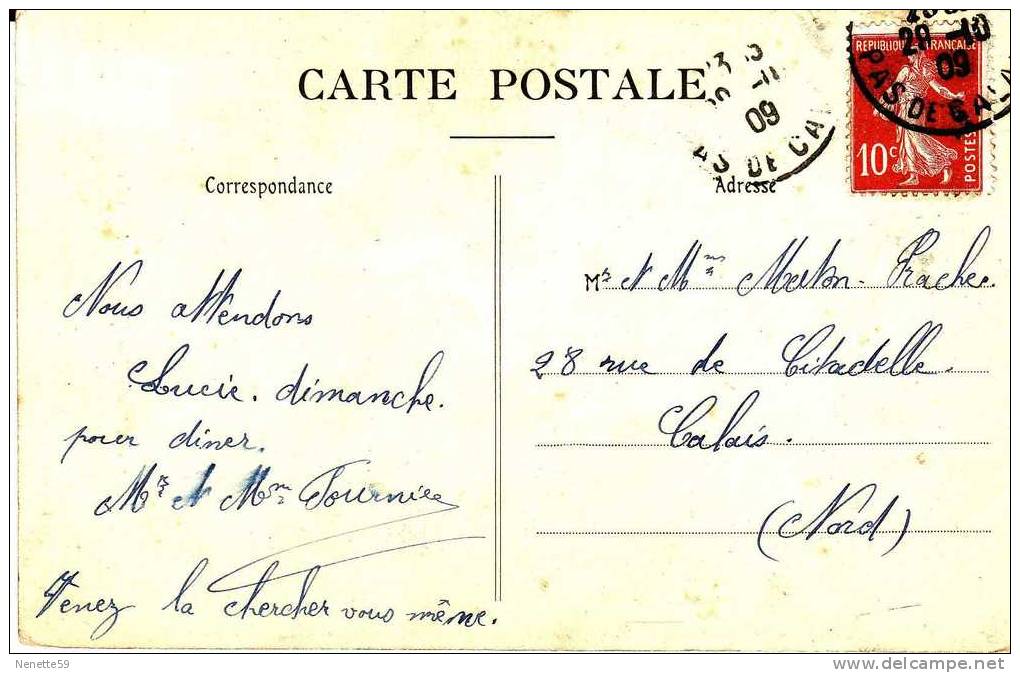 CARTE POSTALE
Correspondance
Adresse
REPUBLIQUE FRANÇAISE
10c
POSTES
29 -10
09
PAS DE CA
09
AS DE CA
Nous attendons
Lucie. dimanche.
pour diner.
Mr et Mme Fournier
Venez la chercher vous même.
Mr et Mme
28 rue de Citadelle.
Calais.
(Nord)
Nenette59
http://www.delcampe.net